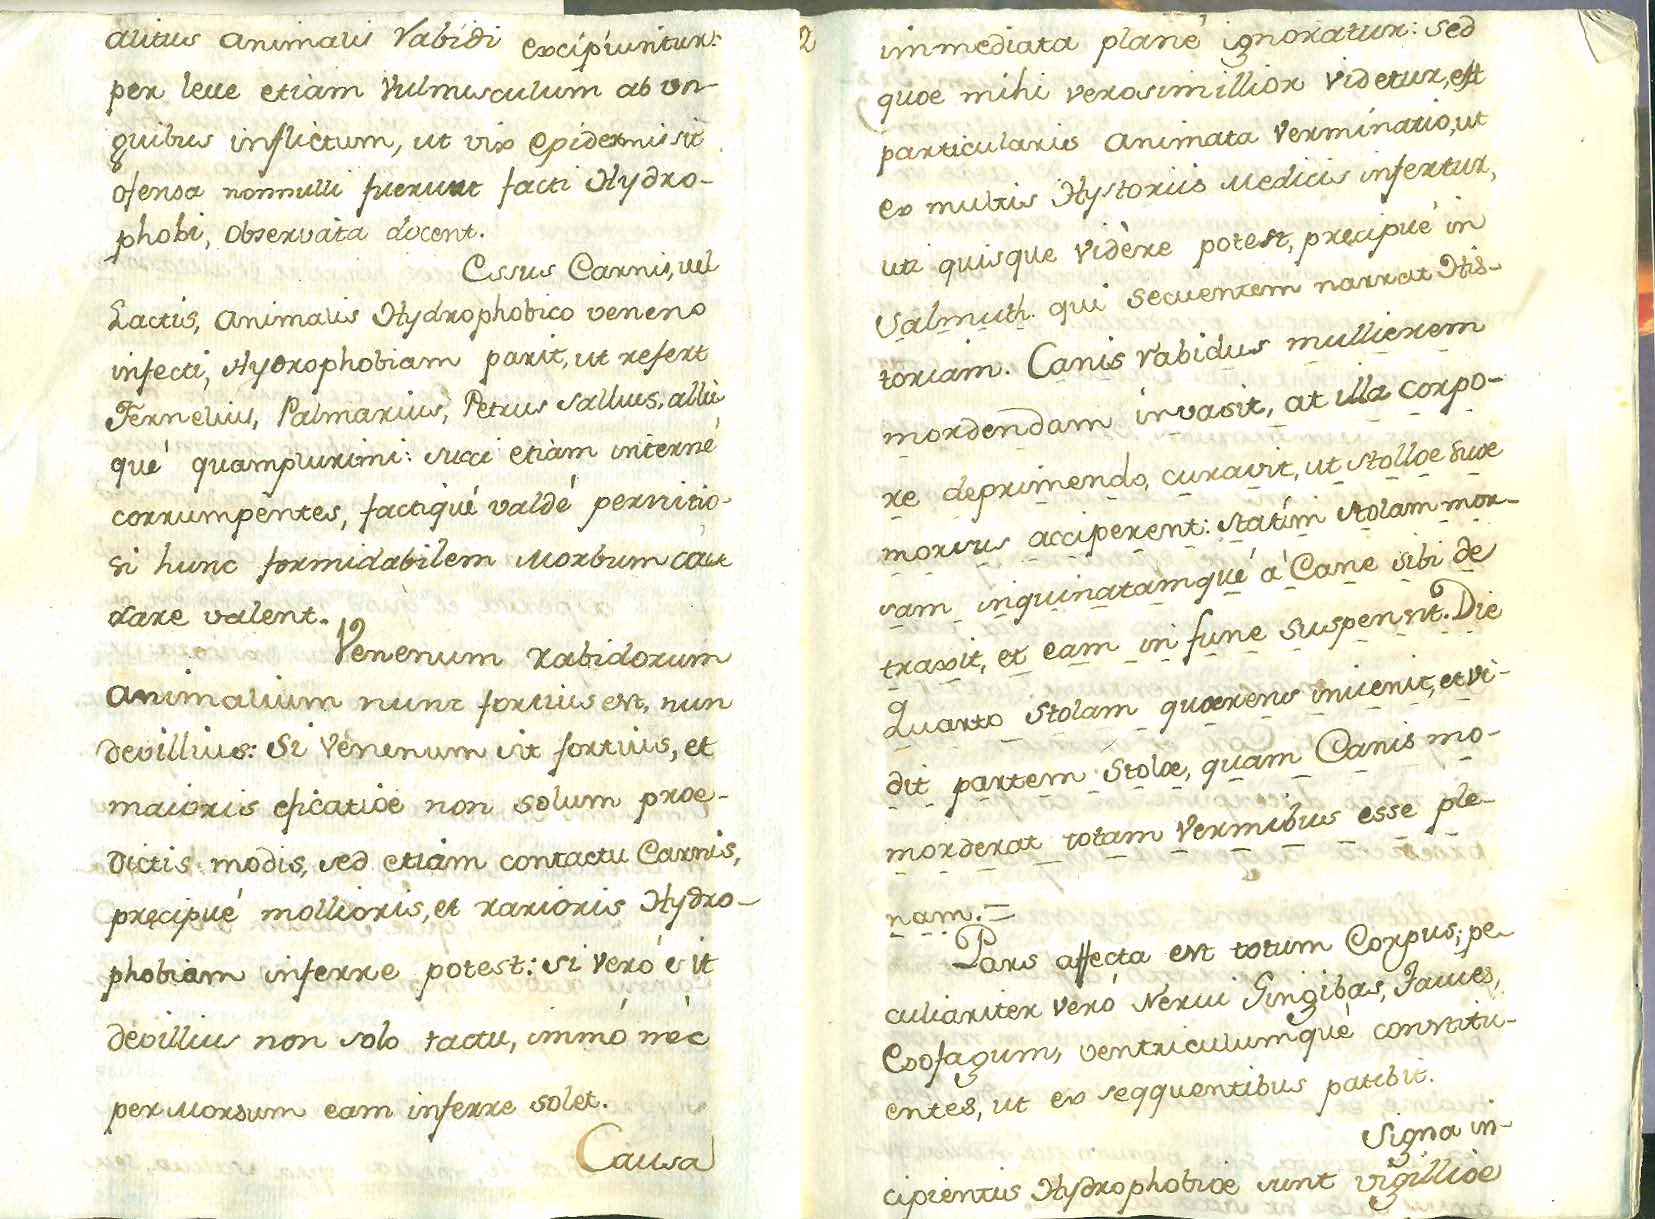 alitus animalis Rabidi excipiuntur:
per leue etiam Vulnusculum ab vn-
guibus inflictum, ut vix epidermis sit
ofensa nonnulli fuerunt facti Hydro-
phobi, observata docent.
Essus Carnis, vel
Lactis, animalis Hydrophobico veneno
infecti, Hydrophobiam parit, ut refert
Fernelius, Palmarius, Petrus Sallius, allii
qué quamplurimi: succi etiam interné
corrumpentes, factiqué valdé pernitio-
si hunc formidabilem Morbum cau
sare valent.
Venenum rabidorum
animalium nunc fortius est, nun
devillius: Si Venenum sit fortius, et
maioris eficatiœ non solum prœ-
dictis modis, sed etiam contactu Carnis,
pręcipué mollioris, et rarioris Hydro-
phobiam inferre potest: si veró sit
devillius non solo tactu, immó nèc
per Morsum eam inferre solet.
Causa
2
immediata plané ignoratur: sed
quœ mihi verosimillior videtur, est
particularis animata Verminatio, ut
ex multis Hystoriis Medicis infertur,
uti quisque vidère potest, pręcipué in
Salmuth. qui secuentem narrat His-
toriam. Canis rabidus mullierem
mordendam invasit, at illa corpo-
re deprimendo, curavit, ut stollœ suœ
morsus acciperent: statim stolam mor-
sam inquinatamqué á Cane sibi de
traxit, et eam in fune suspensit. Die
quarto stolam quœrens inuenit, et vi-
dit partem stolœ, quam Canis mo-
morderat totam Vermibus esse ple-
nam.=
Pars affecta est totum Corpus; pe-
culiariter veró Nerui Gingibas, Fauces,
Exofagum, ventriculumqué constitu-
entes, ut ex seqquentibus patebit.
Signa in-
cipientis Hydrophobiœ sunt vigilliœ